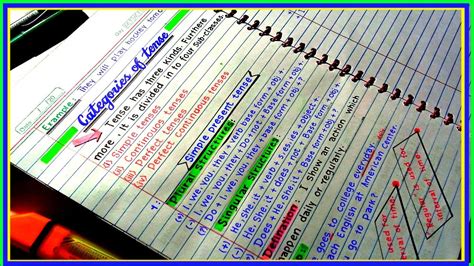 They will play hockey tomo
Example:
Categories of tense
Tense has three kinds. Furthere
more, It is divided in to four sub-classes.
(i) Simple tenses
(ii) Continuous tenses
(iii) Perfect tenses
(iv) Perfect continuous tenses
Simple present tense
Plural structures:
I, we, you, they + verb base form + obj.
Do + I, we, you, they + base form + obj
I, we, you, they + Do not + Base form + obj.
Singular structures
He, She, it + verb + s/es + obj.
Does + He, She, it + Base form + obj
He, She, it + Does not + Base form + obj
Defination:
I show an action which
happen daily or regularly.
goes to college everyday.
each English at American Center
go to Park